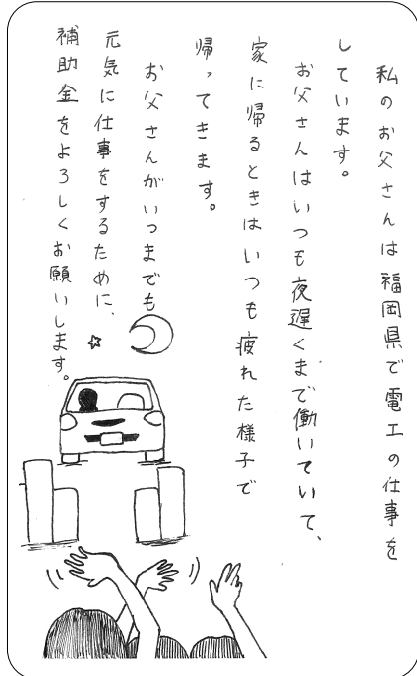 私のお父さんは福岡県で電工の仕事を
しています。
お父さんはいつも夜遅くまで働いていて、
家に帰るときはいつも疲れた様子で
帰ってきます。
お父さんがいつまでも
元気に仕事をするために、
補助金をよろしくお願いします。